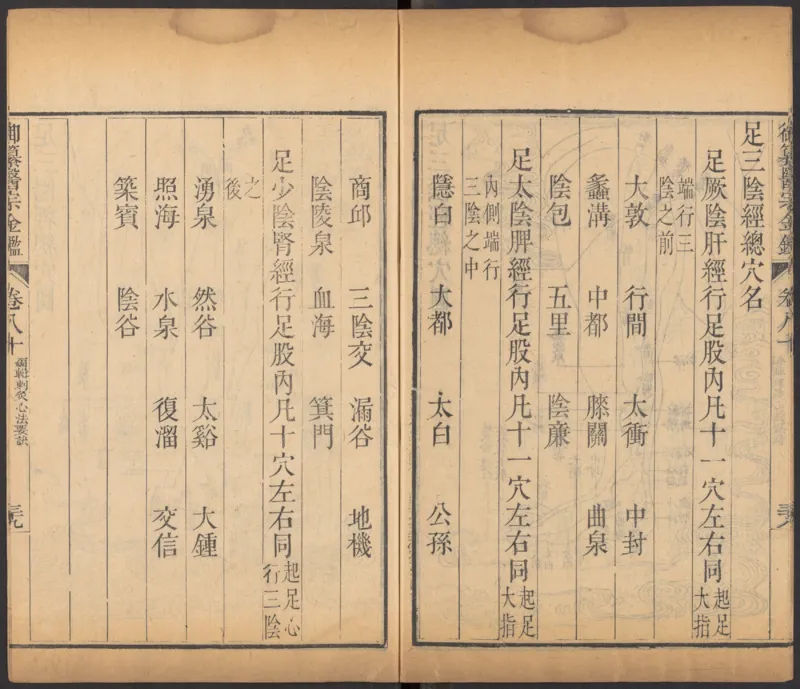 御纂醫宗金鑑 卷八十
足三陰經總穴名
足厥陰肝經行足股內凡十一穴左右同起足大指
端行三陰之前
大敦 行間 太衝 中封
蠡溝 中都 膝關 曲泉
陰包 五里 陰廉
足太陰脾經行足股內凡十一穴左右同起足大指
內側端行三陰之中
隱白 大都 太白 公孫
商邱 三陰交 漏谷 地機
陰陵泉 血海 箕門
足少陰腎經行足股內凡十穴左右同起足心行三陰
之後
湧泉 然谷 太谿 大鍾
照海 水泉 復溜 交信
築賓 陰谷
御纂醫宗金鑑 卷八十 編輯刺灸心法要訣 三九